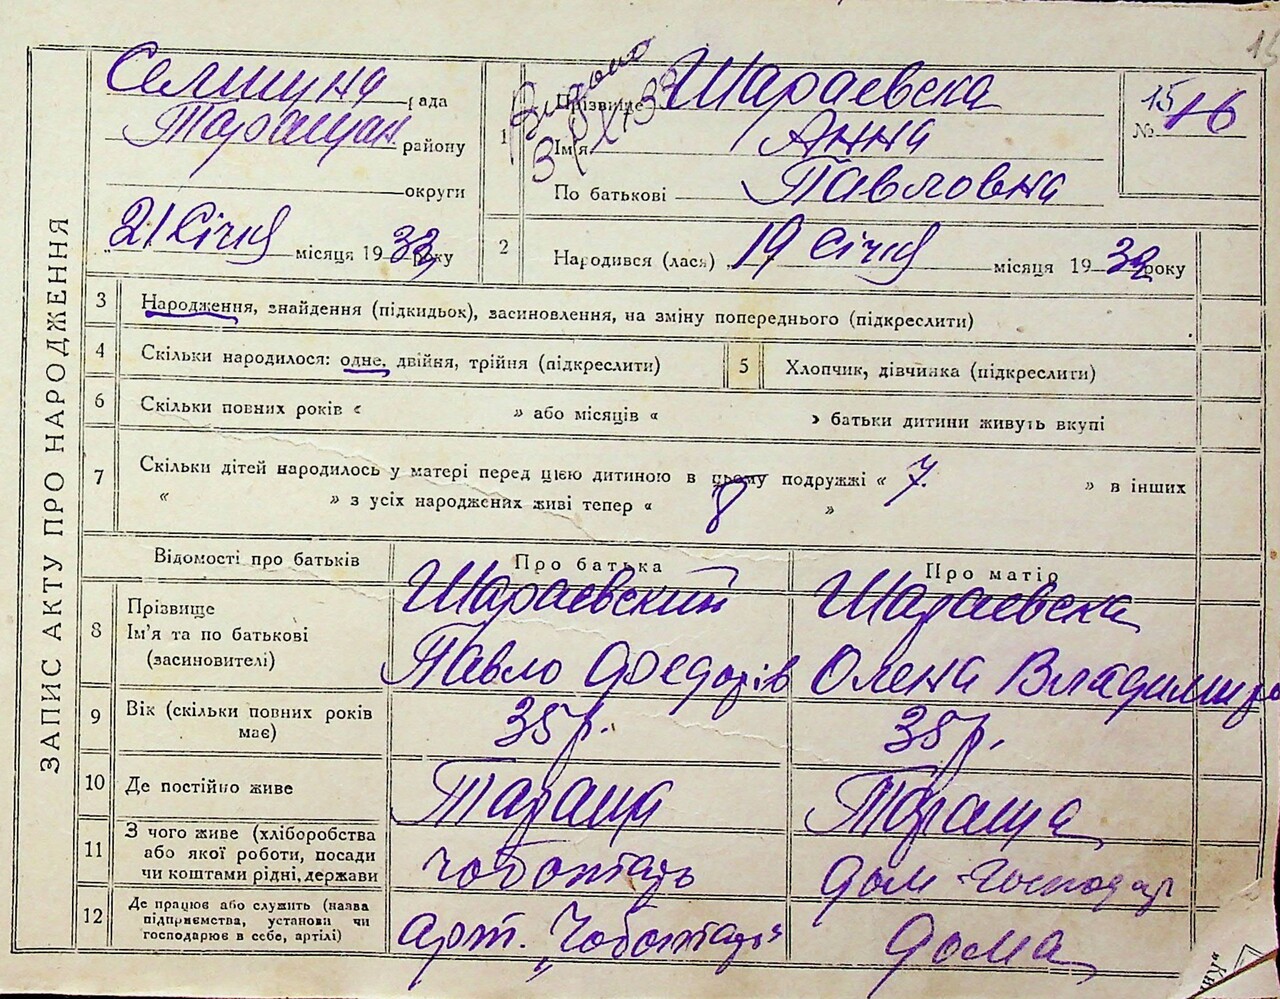 15
ЗАПИС АКТУ ПРО НАРОДЖЕННЯ
Селищна рада
Таращан району
округи
„21 Січня місяця 1933 року
1
Видано
Прізвище Шараевска
Ім'я Анна
По батькові Павловна
№ 15/16
2
Народився (лася) „19 Січня місяця 1933 року
3 Народження, знайдення (підкидьок), засиновлення, на зміну попереднього (підкреслити)
4 Скільки народилося: одне, двійня, трійня (підкреслити)
5 Хлопчик, дівчинка (підкреслити)
6 Скільки повних років « » або місяців « » батьки дитини живуть вкупі
7 Скільки дітей народилось у матері перед цією дитиною в цьому подружжі « 7 » в інших
« » з усіх народжених живі тепер « 8 »
Відомості про батьків Про батька Про матір
8 Прізвище Шараевский Шараевска
Ім'я та по батькові
(засиновителі) Павло Федорів Олена Владимир
9 Вік (скільки повних років має) 35 р. 35 р.
10 Де постійно живе Тараща Тараща
11 З чого живе (хліборобства
або якої роботи, посади
чи коштами рідні, держави чоботарь дом-господар
12 Де працює або служить (назва
підприємства, установи чи
господарює в себе, артілі) арт. „Чоботарь" дома